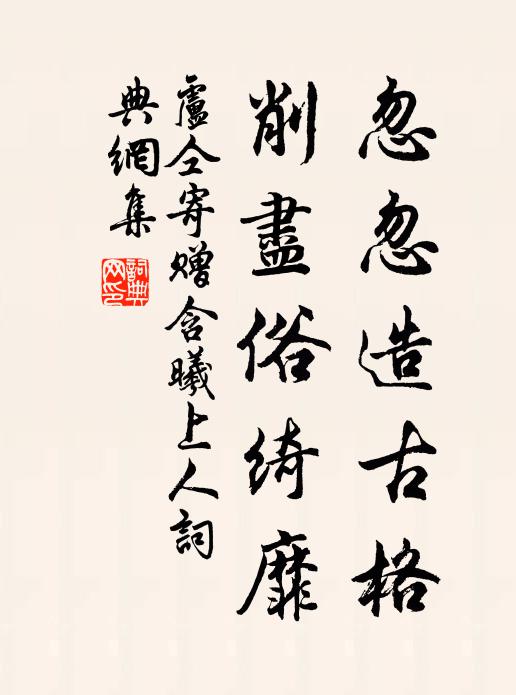 忽忽造古格
削盡俗綺靡
盧仝寄贈含曦上人詞
典網集
詞典
网印